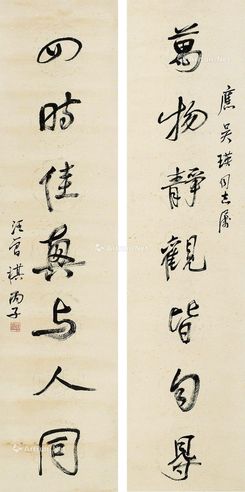 應吳瑛同志属
萬物靜觀皆自得
四時佳興与人同
汪曾祺丙子